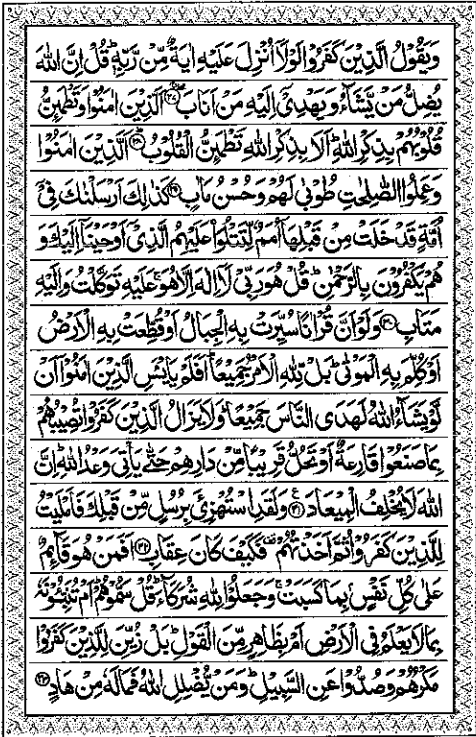 وَيَقُولُ الَّذِينَ كَفَرُوا لَوْلَا أُنْزِلَ عَلَيْهِ اٰيَةٌ مِّنْ رَّبِّهٖ ؕ قُلْ اِنَّ اللهَ
يُضِلُّ مَنْ يَّشَآءُ وَيَهْدِيْٓ اِلَيْهِ مَنْ اَنَابَ ۖ‏﴿۲۷﴾ اَلَّذِيْنَ اٰمَنُوْا وَتَطْمَىِٕنُّ
قُلُوْبُهُمْ بِذِكْرِ اللهِ ؕ اَلَا بِذِكْرِ اللهِ تَطْمَىِٕنُّ الْقُلُوْبُ ؕ‏﴿۲۸﴾ اَلَّذِيْنَ اٰمَنُوْا
وَعَمِلُوا الصّٰلِحٰتِ طُوْبٰى لَهُمْ وَحُسْنُ مَاٰبٍ ‏﴿۲۹﴾ كَذٰلِكَ اَرْسَلْنٰكَ فِيْٓ
اُمَّةٍ قَدْ خَلَتْ مِنْ قَبْلِهَآ اُمَمٌ لِّتَتْلُوَا۟ عَلَيْهِمُ الَّذِيْٓ اَوْحَيْنَآ اِلَيْكَ وَ
هُمْ يَكْفُرُوْنَ بِالرَّحْمٰنِ ؕ قُلْ هُوَ رَبِّيْ لَآ اِلٰهَ اِلَّا هُوَ ۚ عَلَيْهِ تَوَكَّلْتُ وَاِلَيْهِ
مَتَابِ ‏﴿۳۰﴾ وَلَوْ اَنَّ قُرْاٰنًا سُيِّرَتْ بِهِ الْجِبَالُ اَوْ قُطِّعَتْ بِهِ الْاَرْضُ
اَوْ كُلِّمَ بِهِ الْمَوْتٰى ؕ بَلْ لِّلّٰهِ الْاَمْرُ جَمِيْعًا ؕ اَفَلَمْ يَايْـَٔسِ الَّذِيْنَ اٰمَنُوْٓا اَنْ
لَّوْ يَشَآءُ اللهُ لَهَدَى النَّاسَ جَمِيْعًا ؕ وَلَا يَزَالُ الَّذِيْنَ كَفَرُوْا تُصِيْبُهُمْ
بِمَا صَنَعُوْا قَارِعَةٌ اَوْ تَحُلُّ قَرِيْبًا مِّنْ دَارِهِمْ حَتّٰى يَاْتِيَ وَعْدُ اللهِ ؕ اِنَّ
اللهَ لَا يُخْلِفُ الْمِيْعَادَ ‏﴿۳۱﴾ وَلَقَدِ اسْتُهْزِئَ بِرُسُلٍ مِّنْ قَبْلِكَ فَاَمْلَيْتُ
لِلَّذِيْنَ كَفَرُوْا ثُمَّ اَخَذْتُهُمْ ۫ فَكَيْفَ كَانَ عِقَابِ ‏﴿۳۲﴾ اَفَمَنْ هُوَ قَآىِٕمٌ
عَلٰى كُلِّ نَفْسٍۭ بِمَا كَسَبَتْ ۚ وَجَعَلُوْا لِلّٰهِ شُرَكَآءَ ؕ قُلْ سَمُّوْهُمْ ؕ اَمْ تُنَبِّـُٔوْنَهٗ
بِمَا لَا يَعْلَمُ فِي الْاَرْضِ اَمْ بِظَاهِرٍ مِّنَ الْقَوْلِ ؕ بَلْ زُيِّنَ لِلَّذِيْنَ كَفَرُوْا
مَكْرُهُمْ وَصُدُّوْا عَنِ السَّبِيْلِ ؕ وَمَنْ يُّضْلِلِ اللهُ فَمَا لَهٗ مِنْ هَادٍ ‏﴿۳۳﴾